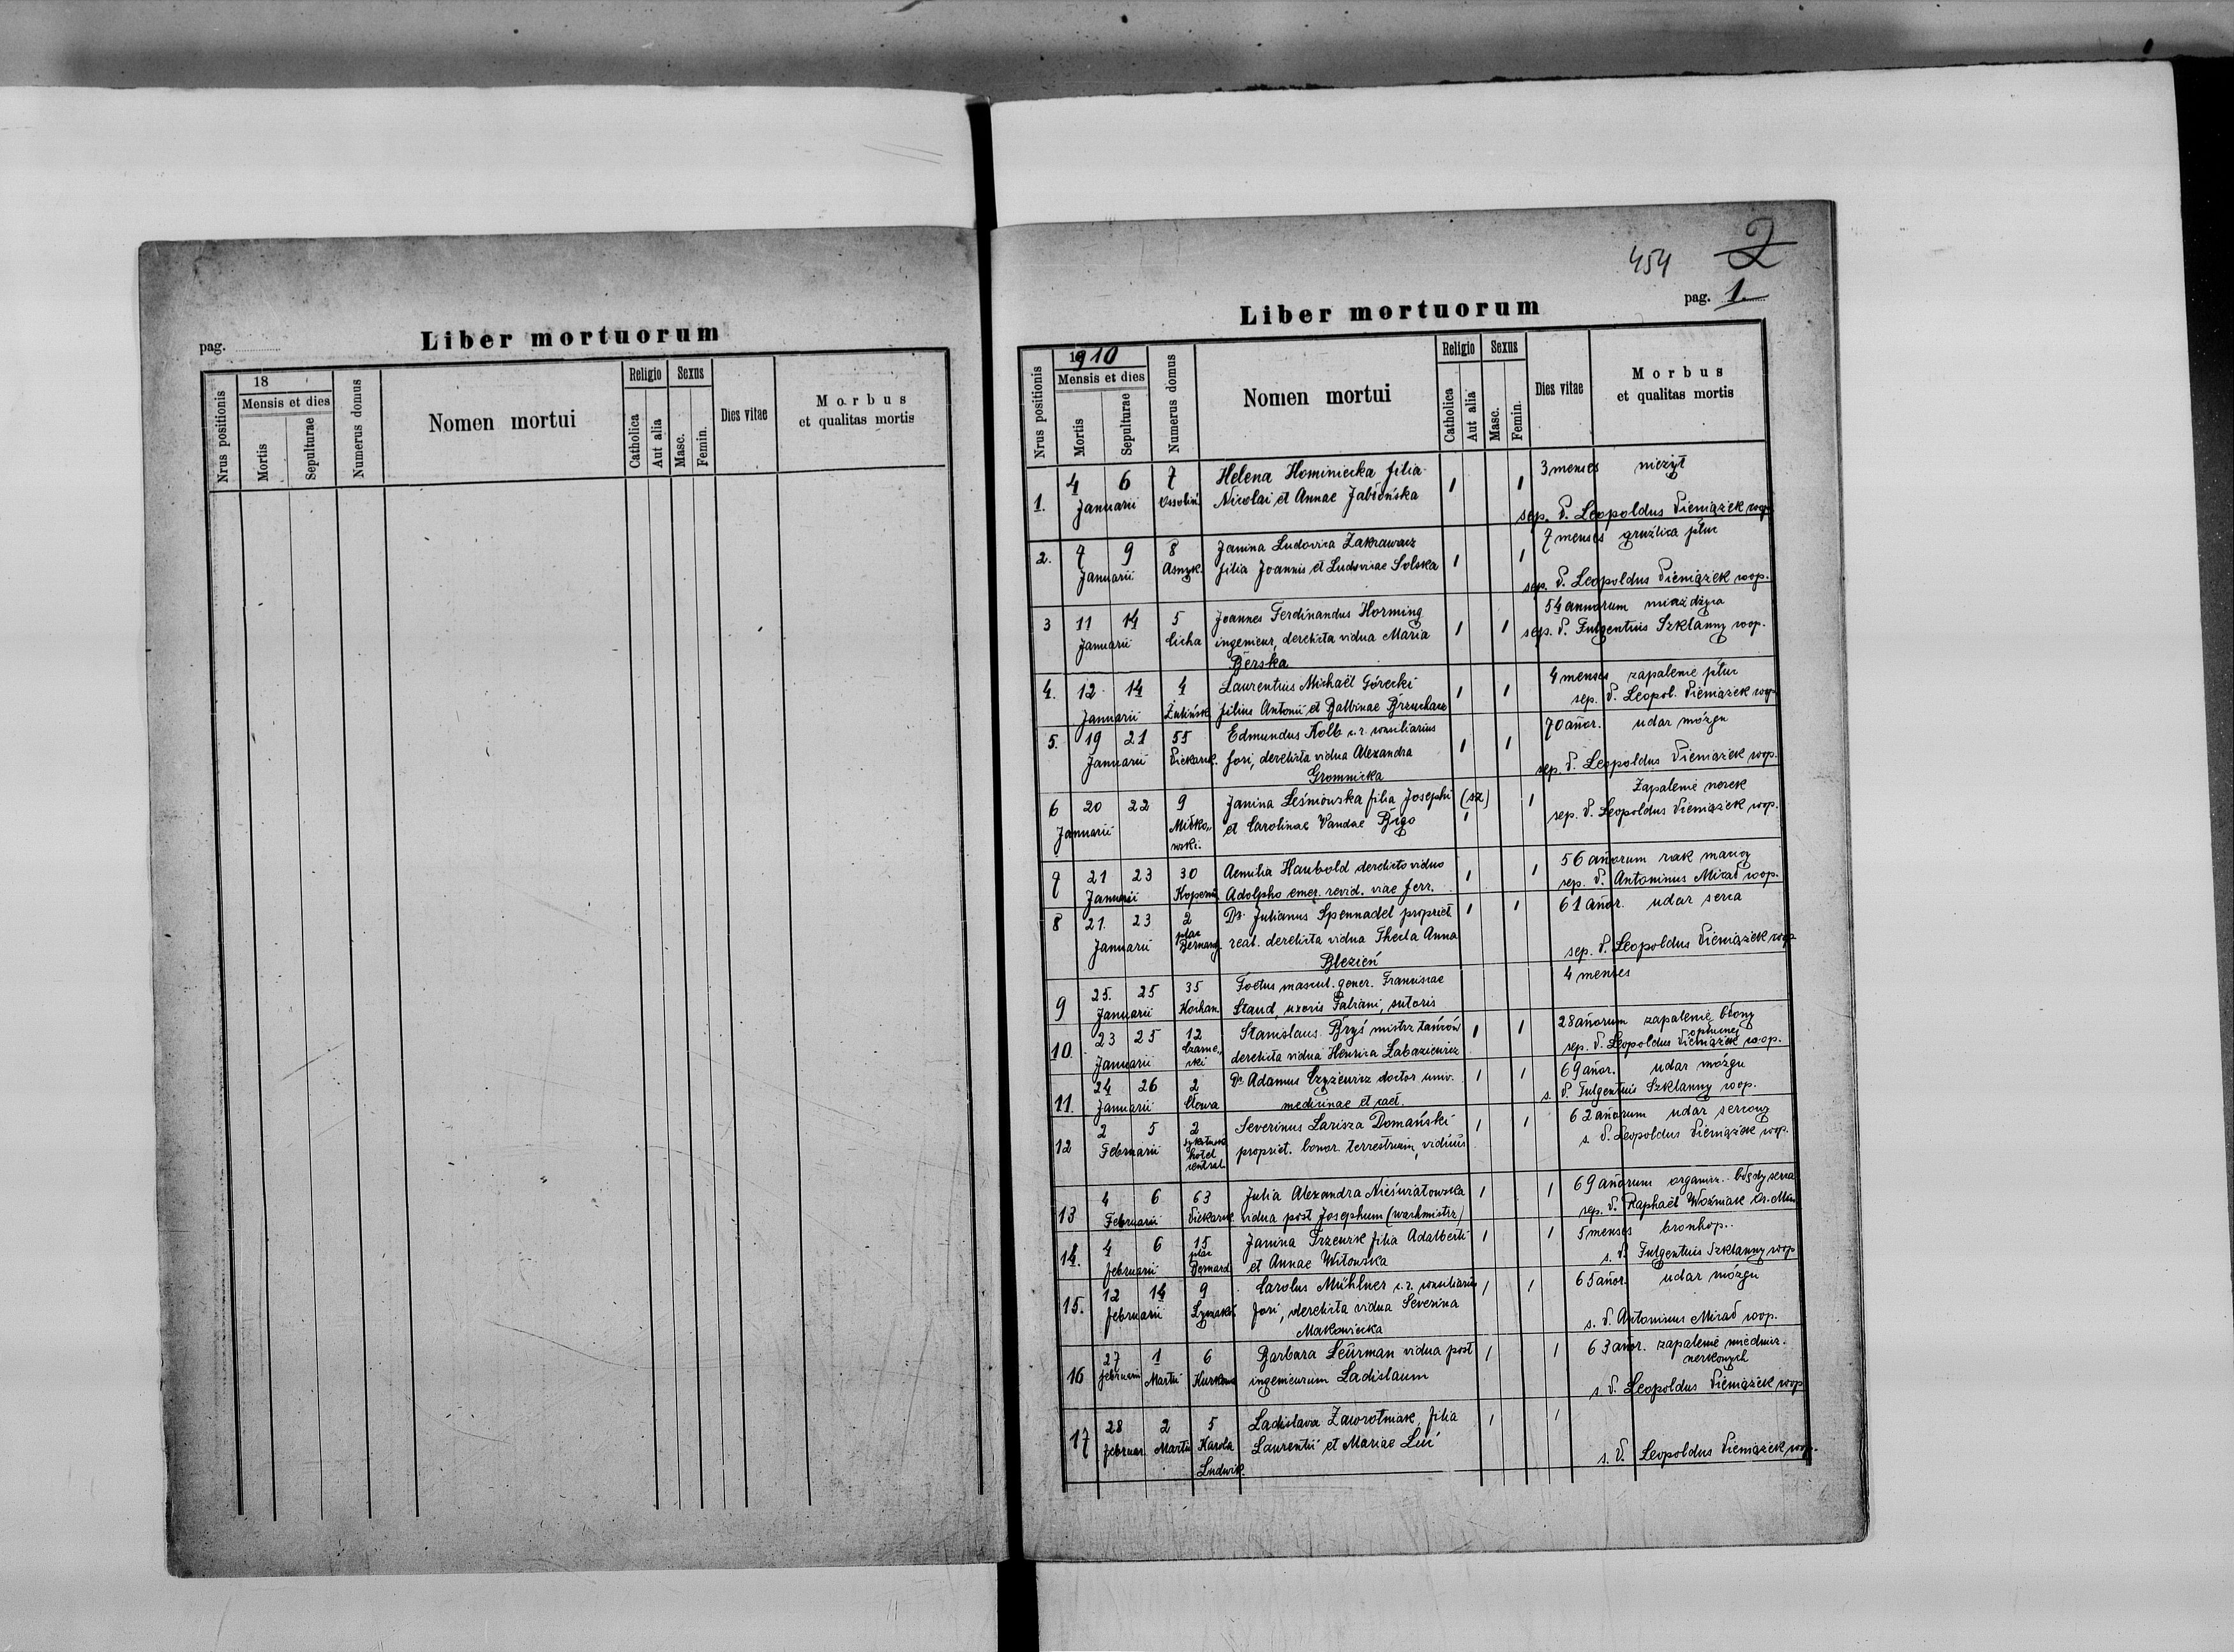 pag.
Liber mortuorum
Nrus positionis
18
Mensis et dies
Mortis
Sepulturae
Numerus domus
Nomen mortui
Religio
Catholica
Aut alia
Sexus
Masc.
Femin.
Dies vitae
Morbus
et qualitas mortis
454 2
pag. 1.
Liber mortuorum
Nrus positionis
1910
Mensis et dies
Mortis
Sepulturae
Numerus domus
Nomen mortui
Religio
Catholica
Aut alia
Sexus
Masc.
Femin.
Dies vitae
Morbus
et qualitas mortis
4 6 7 Helena Hominicka filia 3 menses nieżyt
1. Januarii Ossoliń. Nicolai et Annae Jabłońska 1 1
sep. P. Leopoldus Pieniążek coop.
2. 7 9 8 Janina Ludovica Zakrawacz 7 menses gruźlica płuc
Januarii Asnyk. filia Joannis et Ludovicae Solska 1 1
sep. P. Leopoldus Pieniążek coop.
3 11 14 5 Joannes Ferdinandus Horming 54 annorum miażdżyca
Januarii Cicha ingenieur, derelicta vidua Maria 1 1 sep. P. Fulgentius Szklanny coop.
Berska
4. 12 14 4 Laurentius Michaël Górecki 1 1 4 menses zapalenie płuc
Januarii Zulińsk. filius Antonii et Balbinae Brzuchacz sep. P. Leopol. Pieniążek coop.
5. 19 21 55 Edmundus Kolb c. r. consiliarius 70 añor. udar mózgu
Januarii Piekarsk. fori, derelicta vidua Alexandra 1 1
Gromnicka sep. P. Leopoldus Pieniążek coop.
6 20 22 9 Janina Leśniowska filia Josephi (sz) 1 Zapalenie nerek
Januarii Miłko„ et Carolinae Vandae Brgo 1 sep. P. Leopoldus Pieniążek coop.
wski.
7 21 23 30 Aemilia Haubold derelicto viduo 1 1 56 añorum rak macicy
Januarii Koperni. Adolpho emer. revid. viae ferr. sep. P. Antoninus Mirad coop.
8 21. 23 2 Dr Julianus Spennadel propriet 1 1 61 añor. udar serca
Januarii plac Bernard. real. derelicta vidua Thecla Anna
Blezień sep. P. Leopoldus Pieniążek coop
9 25. 25 35 Foetus mascul. gener. Franciscae 4 menses
Januarii Kochan. Staud, uxoris Fabiani, sutoris
10. 23 25 12 Stanislaus Bryś mistrz tańców 1 1 28 añorum zapalenie błony
Januarii Czarne„ derelicta vidua Henrica Łabaziewicz opłucnej
cki sep. P. Leopoldus Pieniążek coop.
11. 24 26 2 Dr Adamus Czyżewicz doctor univ. 1 1 69 añor. udar mózgu
Januarii Cłowa medicinae et caet. s. P. Fulgentius Szklanny coop.
12 2 5 2 Severinus Larisza Domański 1 1 62 añorum udar sercowy
Februarii hotel propriet. bonor. terrestrium, viduus s. P. Leopoldus Pieniążek coop.
central.
13 4 6 63 Julia Alexandra Nieświatowska 1 1 69 añorum organicz. błędy serca
Februarii Piekarsk. vidua post Josephum (wachmistrz) sep. P. Raphaël Woźniak
14. 4 6 15 Janina Trzeurk filia Adalberti 1 1 5 menses bronhop..
februarii plac Bernard. et Annae Witowska s. P. Fulgentius Szklanny coop
15. 12 14 9 Carolus Mühlner c. r. consiliarius 1 1 65 añor. udar mózgu
februarii Łyczak. fori, derelicta vidua Severina
Makowiecka s. P. Antoninus Mirad coop.
16 27 1 6 Barbara Leürman vidua post 1 1 63 añor. zapalenie miednicz.
februarii Martii Kurkowa ingenieurum Ladislaum nerkowych
s. P. Leopoldus Pieniążek coop
17 28 2 5 Ladislava Zawrotniak, filia 1 1
februar. Martii Karola Laurentii et Mariae Luć
Ludwik. s. P. Leopoldus Pieniążek coop.